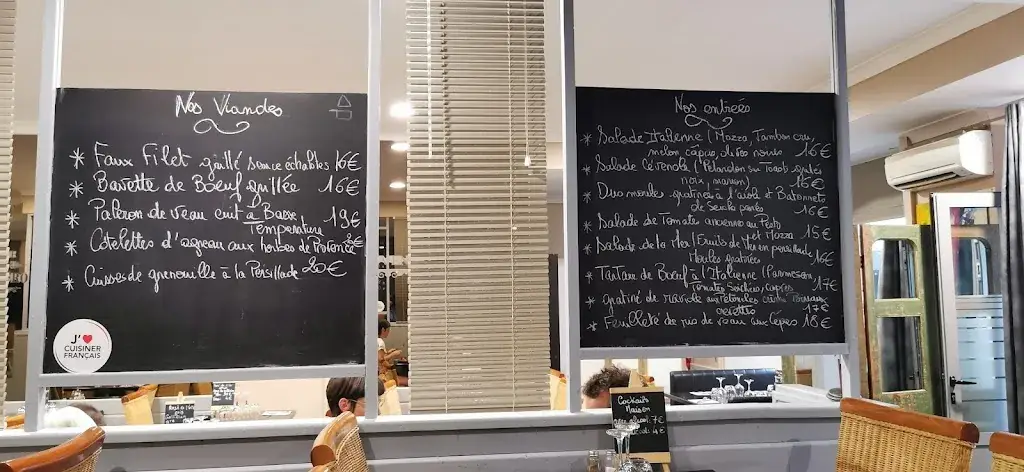 Nos Viandes
* Faux Filet grillé sauce échalotes 16€
* Bavette de Boeuf grillée 16€
* Paleron de veau cuit à Basse
Temperature 19€
* Cotelettes d'agneau aux herbes de Provence
* Cuisses de grenouille à la Persillade 20€
J'♥
CUISINER
FRANÇAIS
Nos entrées
* Salade Italienne (Mozza, Jambon cru,
melon, capres, olives noires 16€
* Salade Cévenole (Pelardon sur Toast
noix, marron) 16€
* Duo moules gratinées à l'aïoli et Batonnets
de Seiche panés 16€
* Salade de Tomate ancienne au Pesto
et Mozza 15€
* Salade de la Mer (Fruits de Mer en persillade,
Moules gratinées 16€
* Tartare de Boeuf à l'Italienne (Parmesan,
Tomates Séchées, capres 17€
* Gratiné de raviole aux
17€
* Feuilleté de ris de veau aux Cèpes 18€
Cocktails
Maison
7€